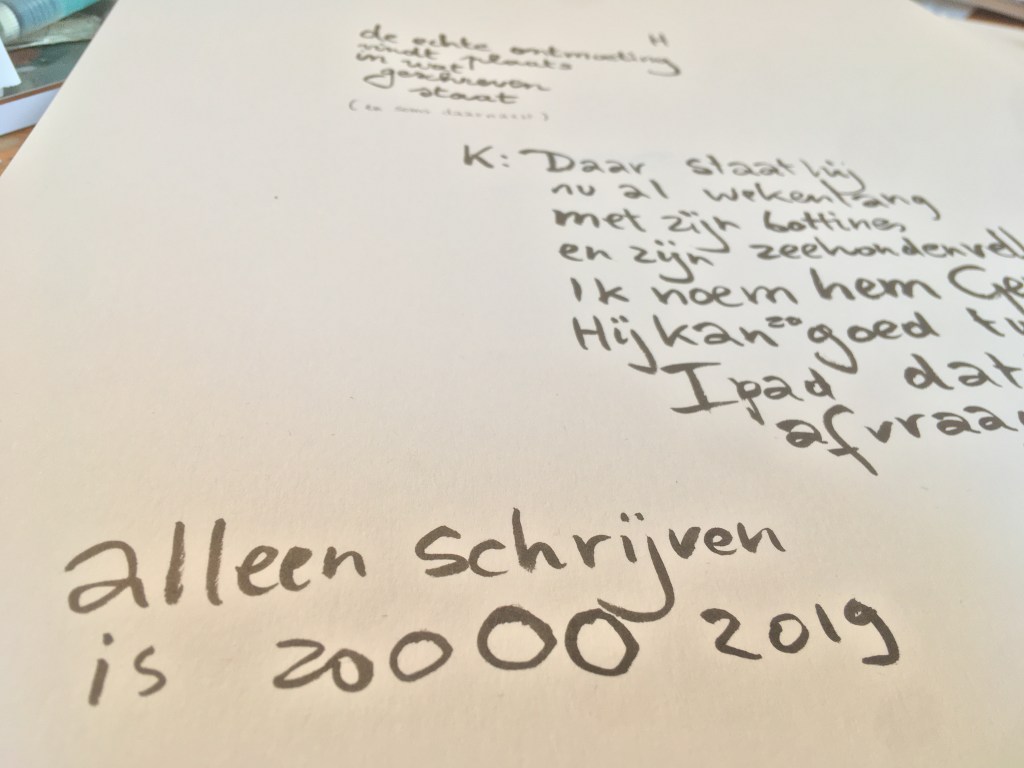 H
de echte ontmoeting
vindt plaats
in wat
geschreven
staat
K: Daar staat hij
nu al wekenlang
met zijn bottines
en zijn zeehondenvell
Ik noem hem Ge
Hij kan zo goed tu
Ipad dat
afvraa
alleen schrijven
is zoooo 2019